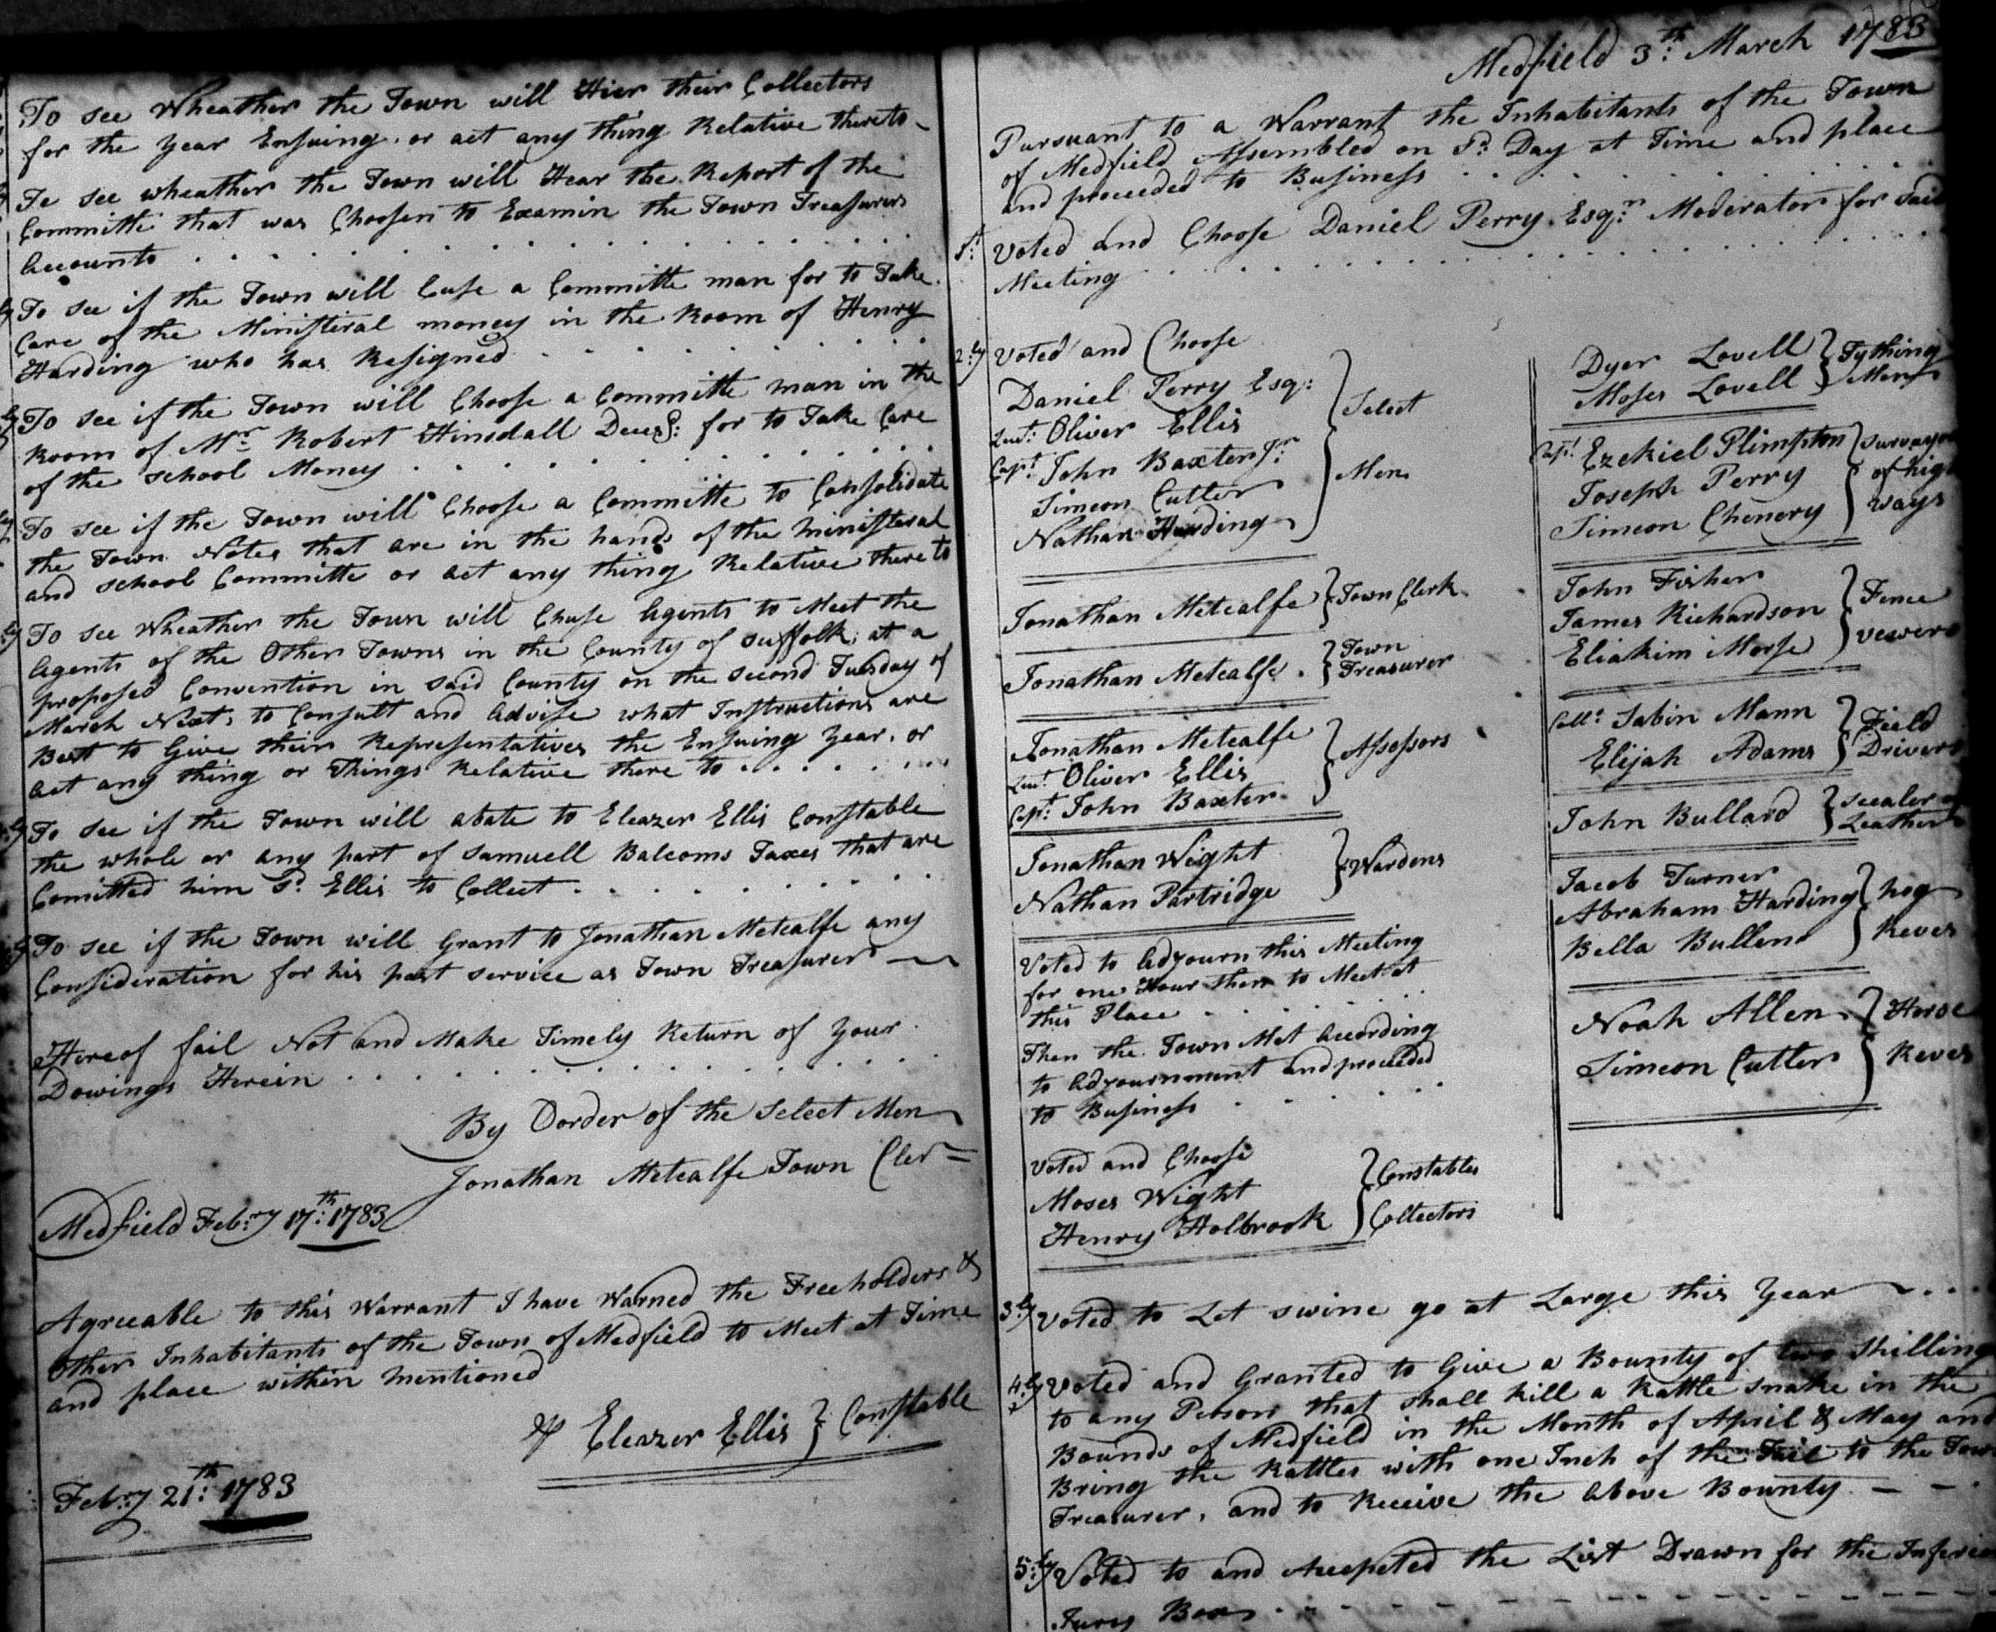 To see Wheather the Town will Hier their Collectors
for the Year Ensuing. or act any thing Relative thereto
To see wheather the Town will Hear the Report of the
Committe that was Choosen to Examin the Town Treasurers
Accounts
To see if the Town will Cuse a Committe man for to Take
Care of the Ministeral money in the Room of Henry
Harding who has Resigned
To see if the Town will Choose a Committe man in the
Room of Mr. Robert Hinsdall Decesd: for to Take Care
of the school Money
To see if the Town will Choose a Committe to Consolidate
the Town Notes that are in the hands of the ministeral
and school Committe or act any thing Relative there to
To see Wheather the Town will Chuse Agents to Meet the
Agents of the Other Towns in the County of suffolk, at a
proposed Convention in said County on the second Tuesday of
March Next, to Consult and Advise what Instructions are
Best to Give their Representatives the Ensuing Year, or
act any thing or Things Relative there to
To see if the Town will abate to Eleazer Ellis Constable
the whole or any part of Samuell Balcoms Taxes that are
Comitted him Sd. Ellis to Collect
To see if the Town will Grant to Jonathan Metcalfe any
Consideration for his past service as Town Treasurer
Hereof fail Not and Make Timely Return of Your
Dowings Herein
By Oorder of the select Men
Jonathan Metcalfe Town Cler
Medfield Febry 17th: 1783
Agreeable to this Warrant I have Warned the Freeholders &
other Inhabitants of the Town of Medfield to Meet at Time
and place within mentioned
Eleazer Ellis } Constable
Febry 21th: 1783
Medfield 3th: March 1783
Pursuant to a Warrant the Inhabitants of the Town
of Medfield Assembled on Sd: Day at Time and place
and proceeded to Business
1t: Voted and Choose Daniel Perry Esqr: Moderator for said
Meeting
2:ly Voted and Choose
Daniel Perry Esq:
Lieut: Oliver Ellis
Capt John Baxter Jr:
Simeon Cutler
Nathan Harding
} Select
Men
Jonathan Metcalfe } Town Clerk
Jonathan Metcalfe } Town
Treasurer
Jonathan Metcalfe
Lieut: Oliver Ellis
Capt: John Baxter
} Assessors
Jonathan Wight
Nathan Partridge
} Wardens
Voted to Adyourn this Meeting
for one Hour then to Meet at
this Place
Then the Town Met According
to Adyournment and proceeded
to Business
Voted and Choose
Moses Wight
Henry Holbrook
} Constables
Collectors
Dyer Lovell
Moses Lovell
} Tything
Men
Capt. Ezekiel Plimpton
Joseph Perry
Simeon Chenery
}
of
ways
John Fisher
James Richardson
Eliakim Morse
} Fence
vewers
Sabin Mann
Elijah Adams
} Field
Drivers
John Bullard } seealer
Leather
Jacob Turner
Abraham Harding
Bella Bullen
} hog
Reves
Noah Allen
Simeon Cutler
} Horse
Reves
3:ly Voted to Let swine go at Large this Year
4:ly Voted and Granted to Give a Bounty of two Shilling
to any Person that shall kill a Rattle snake in the
Bounds of Medfield in the Month of April & May and
Bring the Rattles with one Inch of the Tail to the Town
Treasurer, and to Receive the Above Bounty
5:ly Voted to and Accepted the List Drawn for the
Jury Box